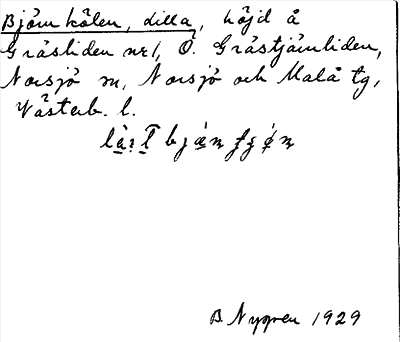 Björnkölen, lilla, höjd å
Gräsliden nr 1, O. Grästjärnliden,
Norsjö sn, Norsjö och Malå tg,
Västerb. l.
B. Nygren 1929